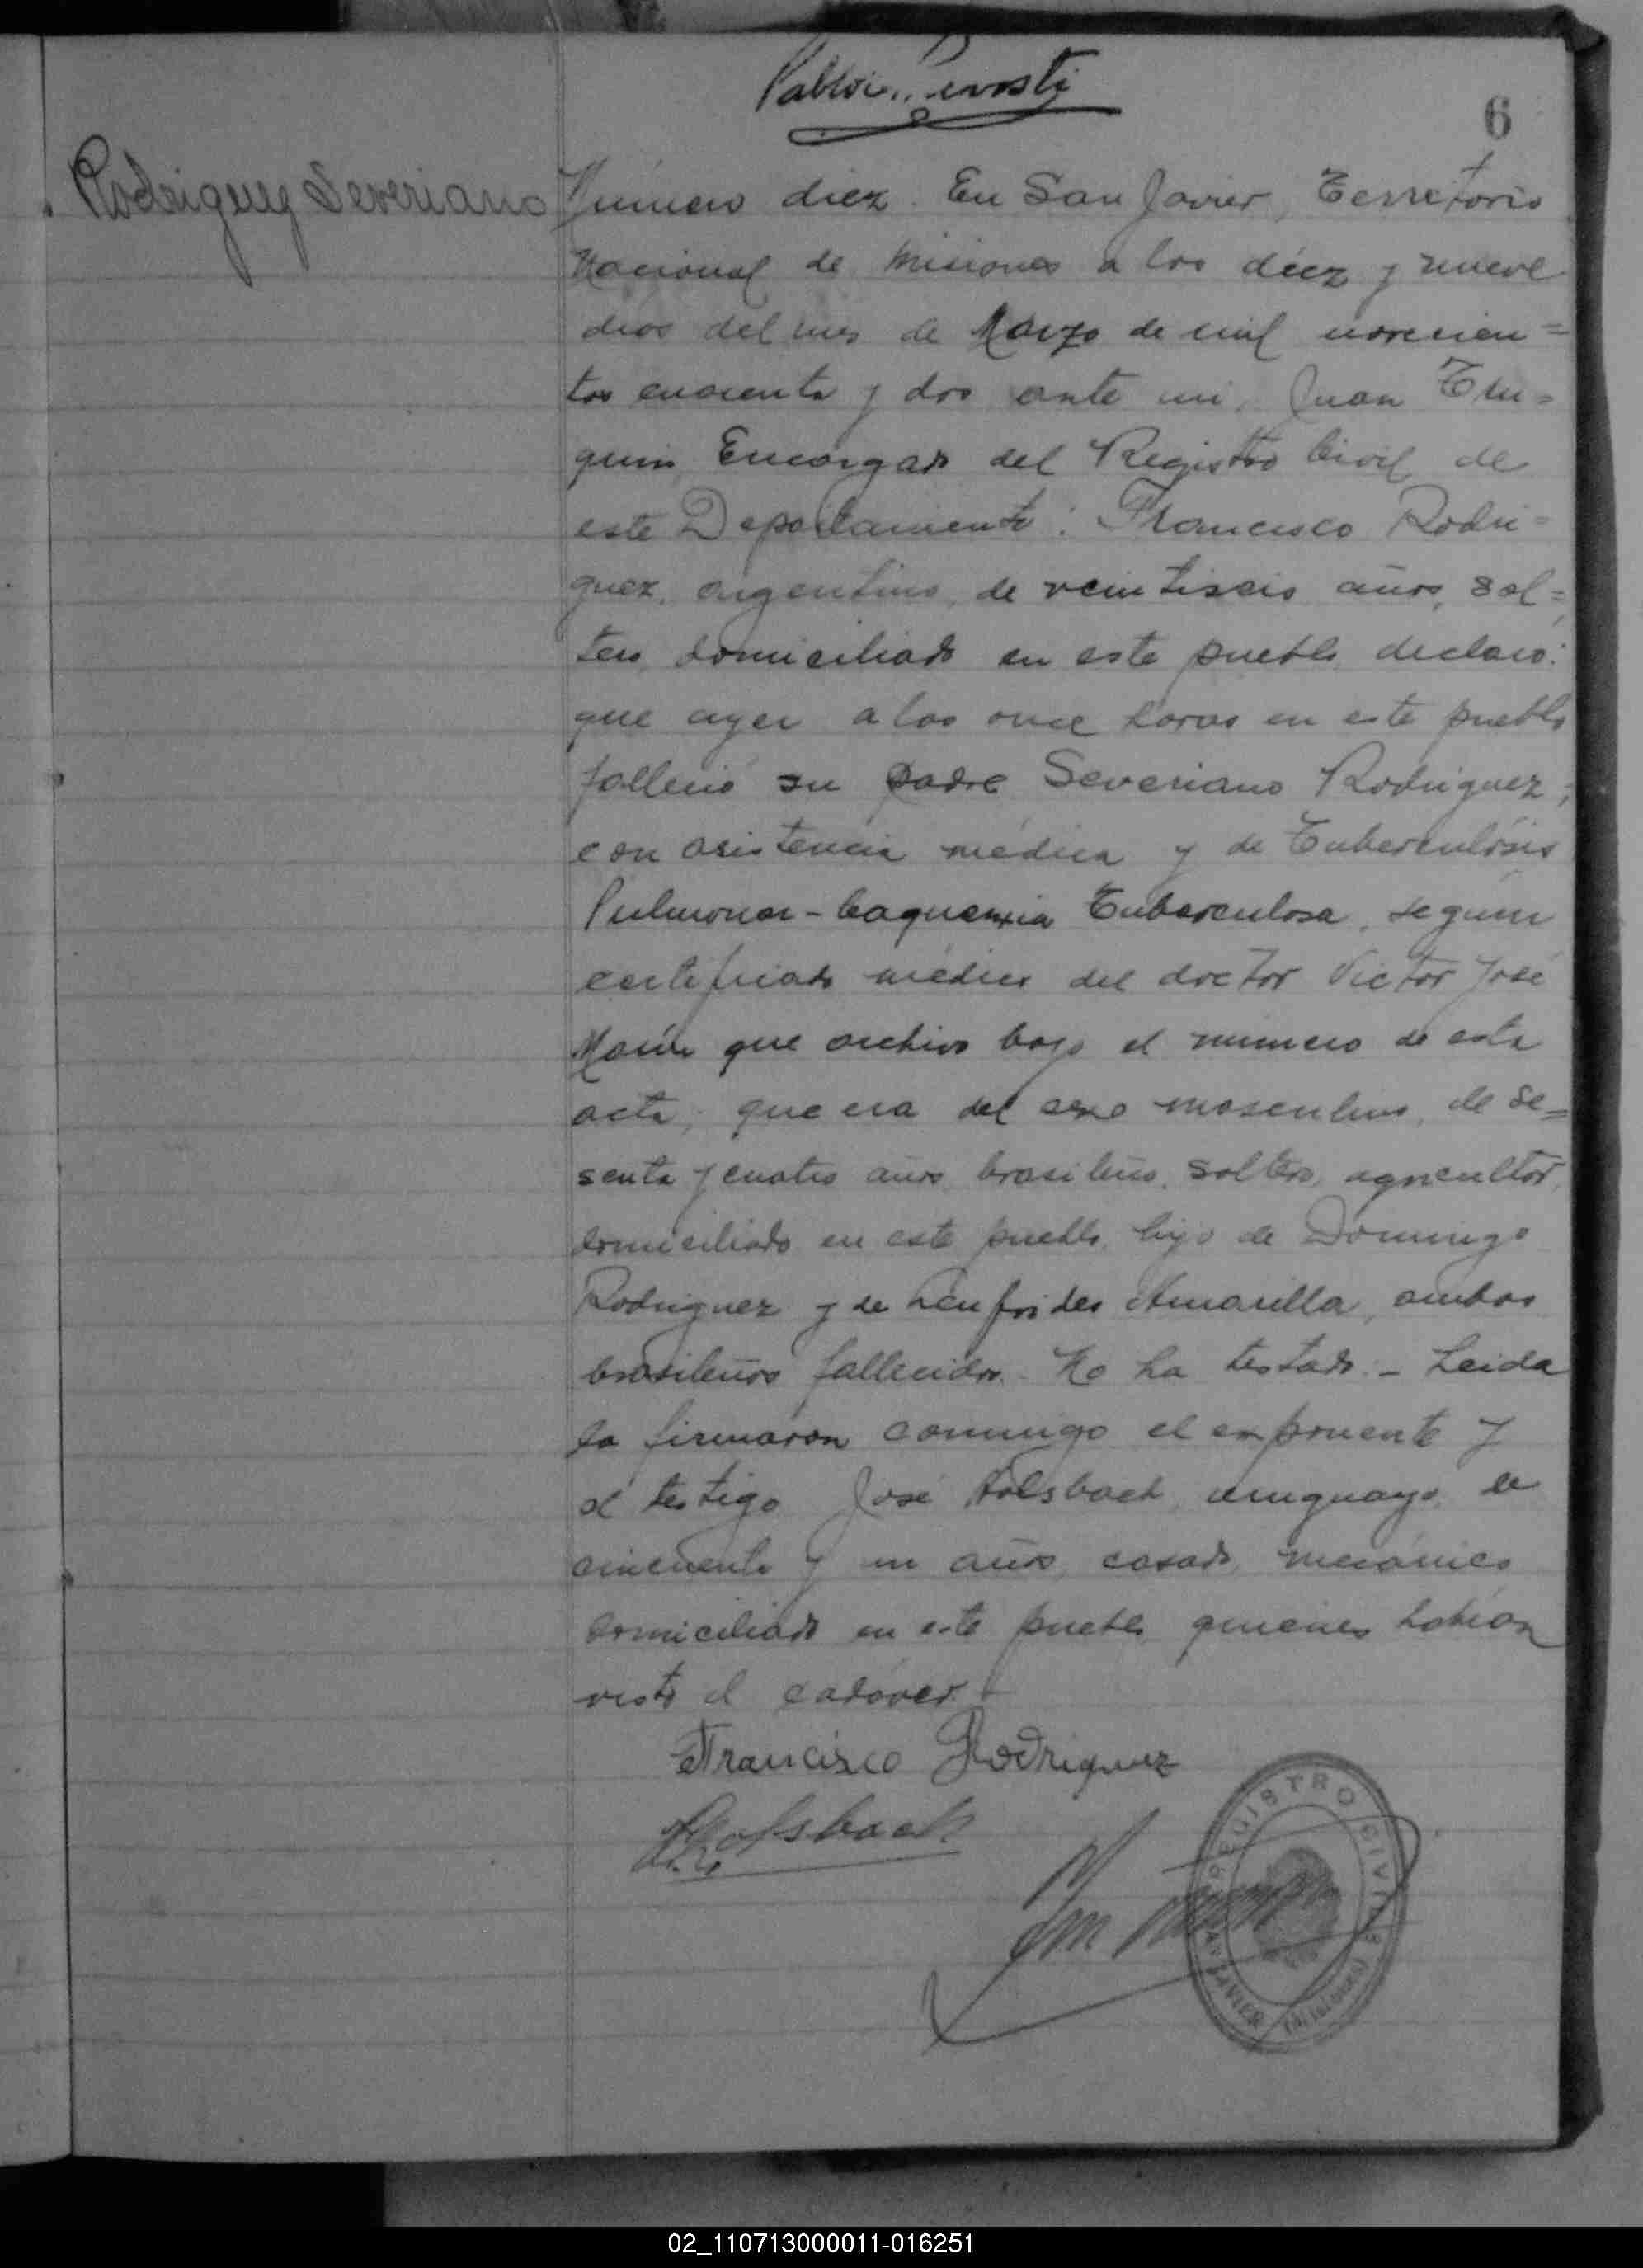 6
Rodriguez Severiano
Número diez. En San Javier, Territorio
Nacional de Misiones a los diez y nueve
dias del mes de Marzo de mil novecien=
tos cuarenta y dos ante mi, Juan
Encargado del Registro Civil de
este Departamento: Francisco Rodri=
guez, argentino, de veintiseis años, sol=
tero, domiciliado en este pueblo, declaró:
que ayer a las once horas en este pueblo
falleció su padre Severiano Rodriguez;
con asistencia médica y de Tuberculósis
Pulmonar - Caquexia Tuberculosa, según
certificado médico del doctor Victor José
Marin que archivo bajo el número de esta
acta; que era del sexo masculino, de se=
senta y cuatro años, brasileño, soltero, agricultor,
domiciliado en este pueblo, hijo de Domingo
Rodriguez y de Amarilla, ambos
brasileños fallecidos. No ha testado. - Leida
la firmaron conmigo el exponente y
el testigo José Holsbach, uruguayo, de
cincuenta y un años, casado, mecánico
domiciliado en este pueblo quienes habian
visto el cadáver. -
Francisco Rodriguez
Holsbach
REGISTRO CIVIL
SAN JAVIER (MISIONES)
02_110713000011-016251